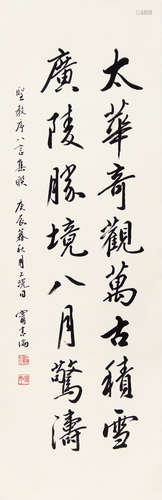 太華奇觀萬古積雪
廣陵勝境八月驚濤
聖教序八言集聯 庚辰暮秋月上浣日